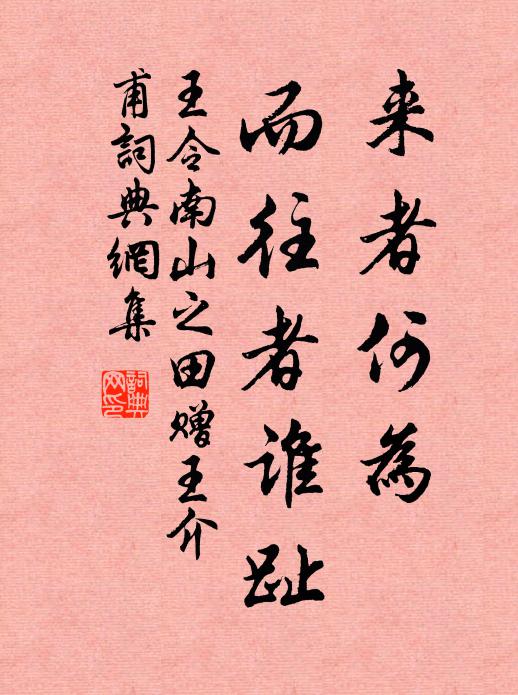 来者何為
而往者誰趾
王令南山之田贈王介
甫詞典網集
詞典
网印